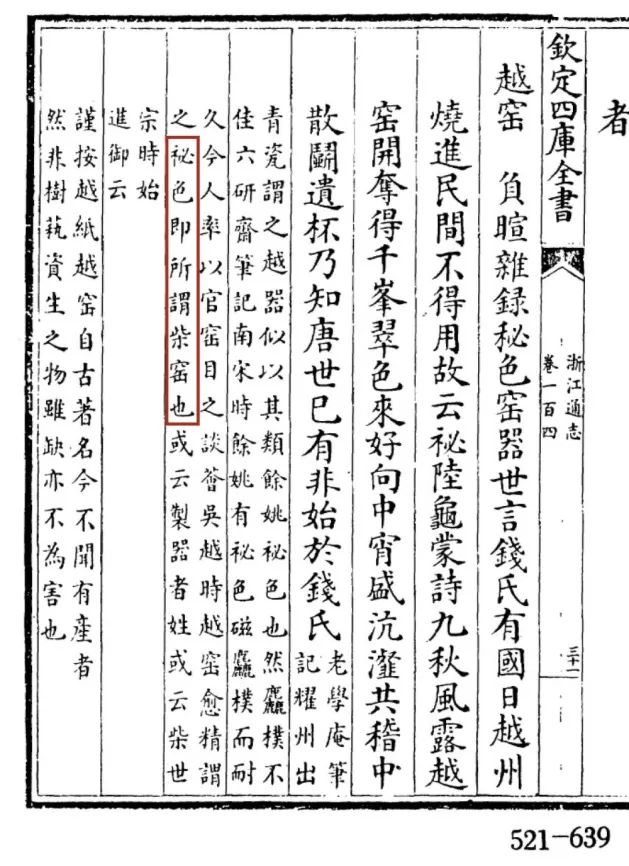 者
欽定四庫全書
浙江通志
卷一百四
三十一
越窑　負暄雜録秘色窑器世言錢氏有國日越州
燒進民間不得用故云祕陸龜蒙詩九秋風露越
窑開奪得千峯翠色來好向中宵盛沆瀣共稽中
散鬭遺杯乃知唐世已有非始於錢氏
老學庵筆
記耀州出
青瓷謂之越器似以其類餘姚祕色也然麤樸不
佳六研齋筆記南宋時餘姚有秘色磁麤樸而耐
久今人率以官窑目之談薈吳越時越窑愈精謂
之祕色即所謂柴窑也或云製器者姓或云柴世
宗時始
進御云
謹按越紙越窑自古著名今不聞有産者
然非樹蓺資生之物雖缺亦不為害也
521-639